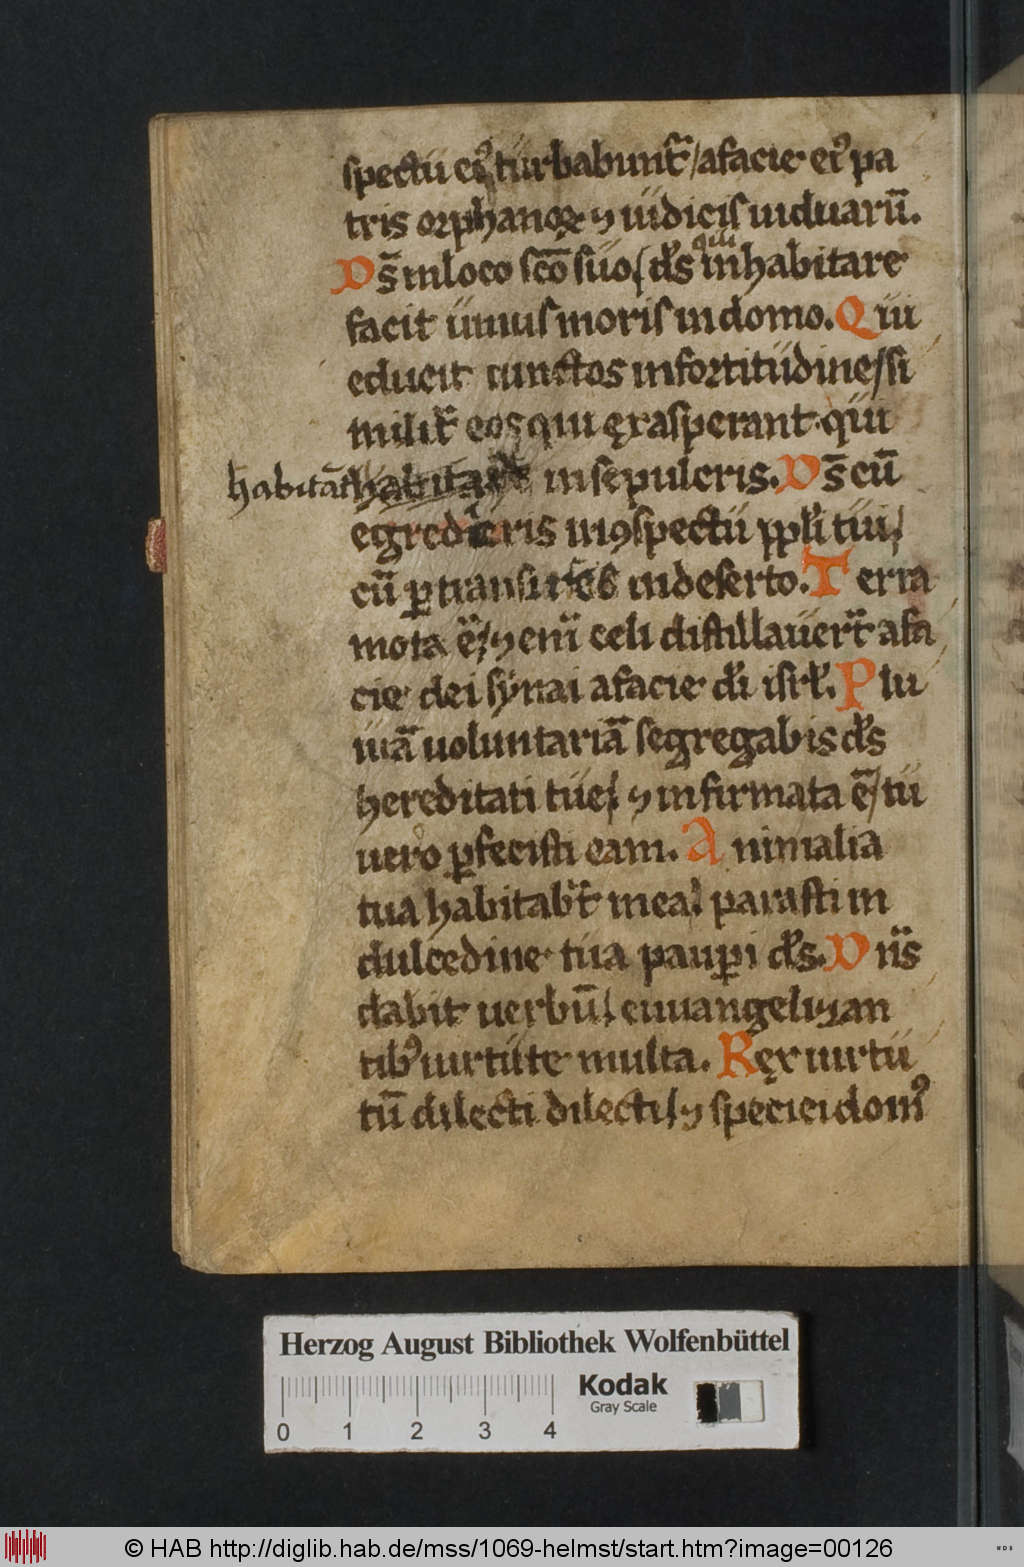 spectu eiꝰ turbabunt᷑ / a facie eiꝰ pa
tris orphanoꝝ ⁊ iudicis uiduarū.
Ds̄ in loco sc̄o suo / ds̄ qui inhabitare
facit unius moris in domo. Qui
educit uinctos in fortitudine / si
milit̄ eos qui exasperant qui
habitāt habitant in sepulcris. Ds̄ cū
egredieris in ꝯspectu ppl̄i tui /
cū ꝑtransires in deserto. Terra
mota ē / ⁊ eni̅ celi distillauer̄t a fa
cie dei synai a facie di̅ isrl̄. Plu
uiā uoluntariā segregabis ds̄
hereditati tue / ⁊ infirmata ē / tu
uero ꝑfecisti eam. Animalia
tua habitab̄t in ea / parasti in
dulcedine tua pauꝑi ds̄. Dn̄s
dabit uerbū / euuangelizan
tibꝰ uirtute multa. Rex uirtu
tū dilecti dilecti / ⁊ speciei domꝰ
Herzog August Bibliothek Wolfenbüttel
Kodak
Gray Scale
0 1 2 3 4
© HAB http://diglib.hab.de/mss/1069-helmst/start.htm?image=00126